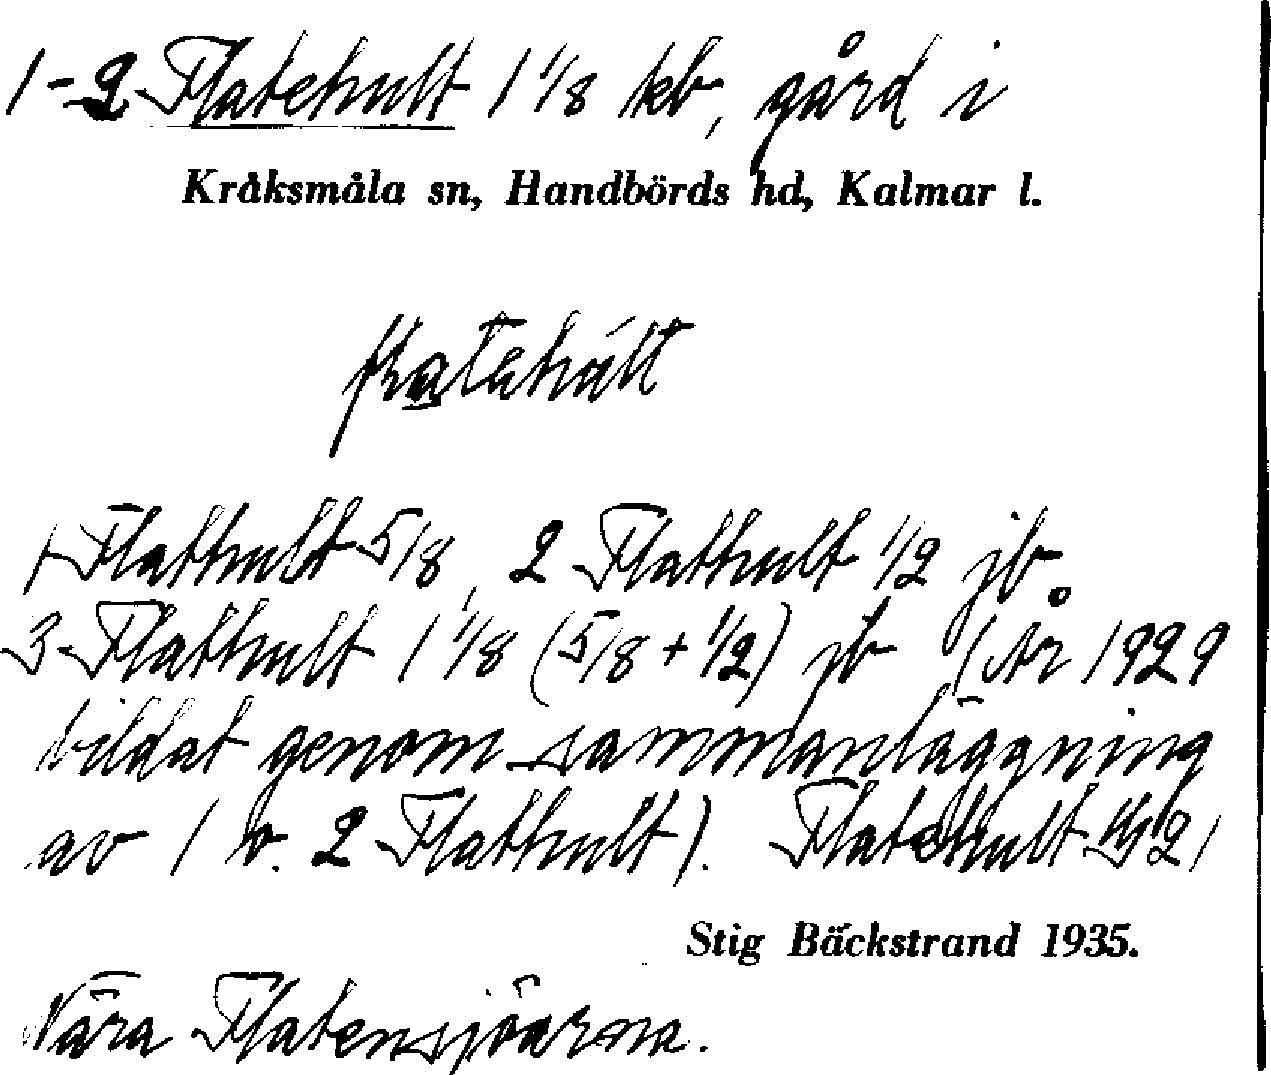 1-2 Flatehult 1 1/8 kb, gård i
Kråksmåla sn, Handbörds hd, Kalmar l.
1 Flathult 5/8, 2 Flathult 1/2 jb
3 Flathult 1 1/8 (5/8 + 1/2) jb (År 1929
bildat genom sammanläggning
av 1 o. 2 Flathult). Flatehult
Stig Bäckstrand 1935.
Nära Flatensjöarna.